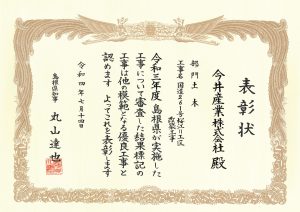 表彰状
今井産業株式会社 殿
部門 土木
工事名 国道２６１号桜江Ⅱ工区
改築工事
令和三年度島根県が実施した
工事について審査した結果標記の
工事は他の模範となる優良工事と
認めます よってこれを表彰します
令和四年七月十四日
島根県知事 丸山達也